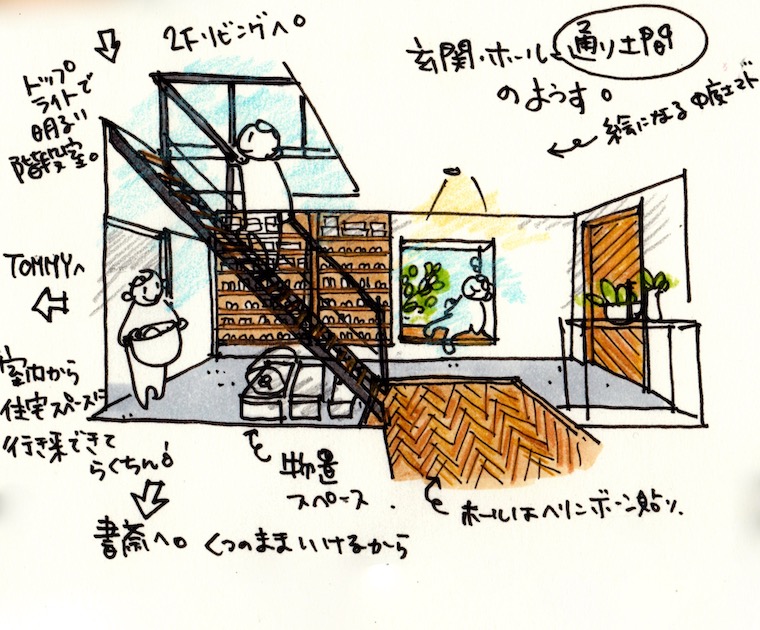 2Fリビングへ。
玄関・ホール・通り土間
のようす。
トップ
ライトで
明るい
階段室。
絵になる中庭マド
TOMMYへ
室内から
住宅スペースに
行き来できて
らくちん!
物置
スペース.
ホールはヘリンボーン貼り.
書斎へ。くつのままいけるから